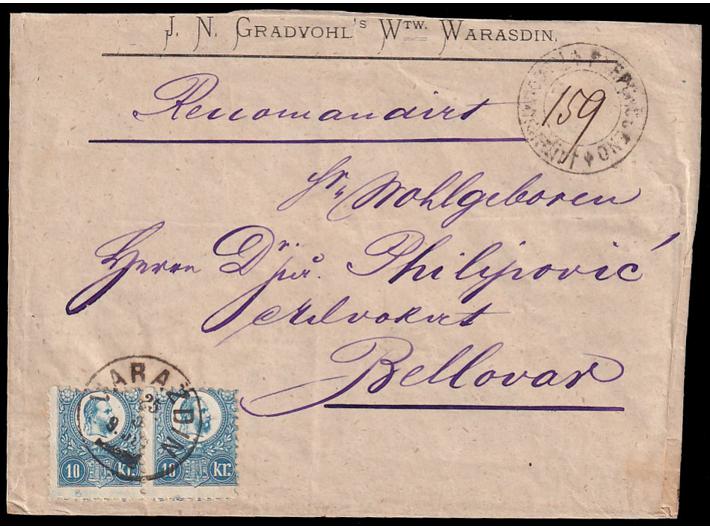 J. N. GRADVOHL's WTW. WARASDIN.
Recomandirt
159
Sr. Wohlgeboren
Herrn Dr. Philipović
Advokat
Bellovar
VARAŽDIN
25
10 Kr. 10 Kr.